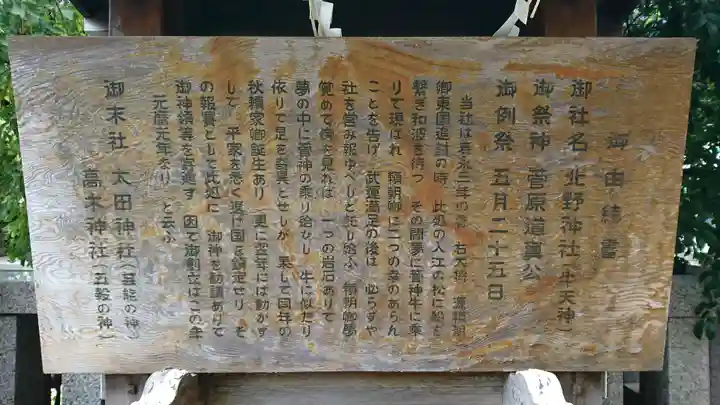 御由緒書
御社名 北野神社(牛天神)
御祭神 菅原道真公
御例祭 五月二十五日
当社は寿永三年の 右大将 源頼朝
卿東国追討の時 此処の入江の松に船を
繋ぎ和波を待つ その間夢に菅神牛に乗
りて現はれ 頼朝卿に二つの幸のあらん
ことを告げ 武運満足の後は 必らずや
社を営み報ゆべしと託り給ふ 頼朝卿夢
覚めて傍を見れば 一つの岩石ありて
夢の中に菅神の乗り給ひし 牛に似たり
依りて是を奇異とせしが 果して同年の
秋頼家卿誕生あり 更に翌年には動かず
して 平家を悉く退け国を鎮定せり そ
の報賽として此処に 御神を勧請ありて
御神領等を寄進す 因て御創立はこの年
元暦元年なりと云ふ
御末社 太田神社(芸能の神)
高木神社(五穀の神)